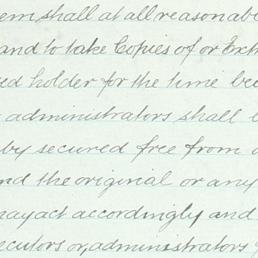 em shall at all reasonab
and to take Copies of or Ext
ed holder for the time be
administrators shall
by secured free from
nd the original or any
may act accordingly and
ecutors or, administrators